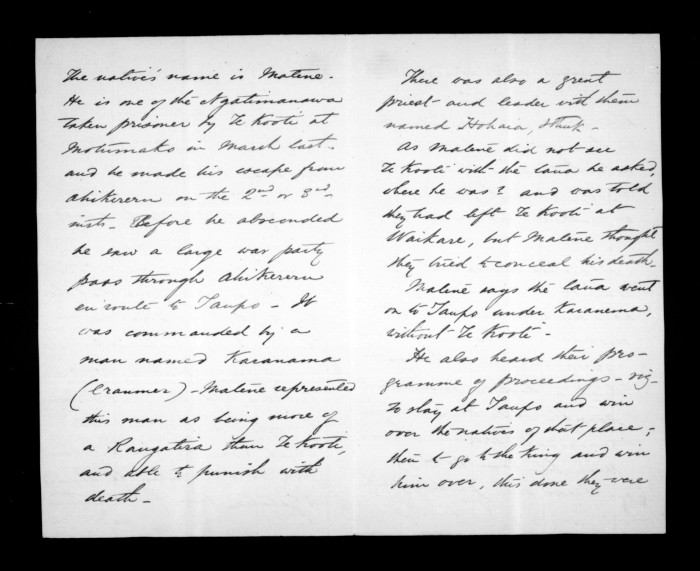 The native's name is Matene.
He is one of the Ngatimanawa
taken prisoner by Te Kooti at
Motumako in March last -
and he made his escape from
Ahikereru on the 2nd or 3rd
inst - Before he absconded
he saw a large war party
pass through Ahikereru
en route to Taupo - It
was commanded by a
man named Karanama
(Cranmer) - Matene represented
this man as being more of
a Rangatira than Te Kooti,
and able to punish with
death -
There was also a great
priest - and leader with them
named Hohaia,
As Matene did not see
Te Kooti with the taua he asked,
where he was? and was told
they had left Te Kooti at
Waikare, but Matene thought
they tried to conceal his death -
Matene says the taua went
on to Taupo under Karanema,
without Te Kooti -
He also heard their pro-
gramme of proceedings - viz -
To stay at Taupo and win
over the natives of that place;
then to go to the King and win
him over, this done they were